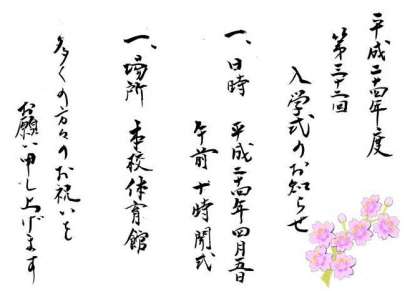 平成二十四年度
第三十二回
入学式のお知らせ
一、日時　平成二十四年四月五日
午前十時開式
一、場所　本校体育館
多くの方々のお祝いを
お願い申し上げます